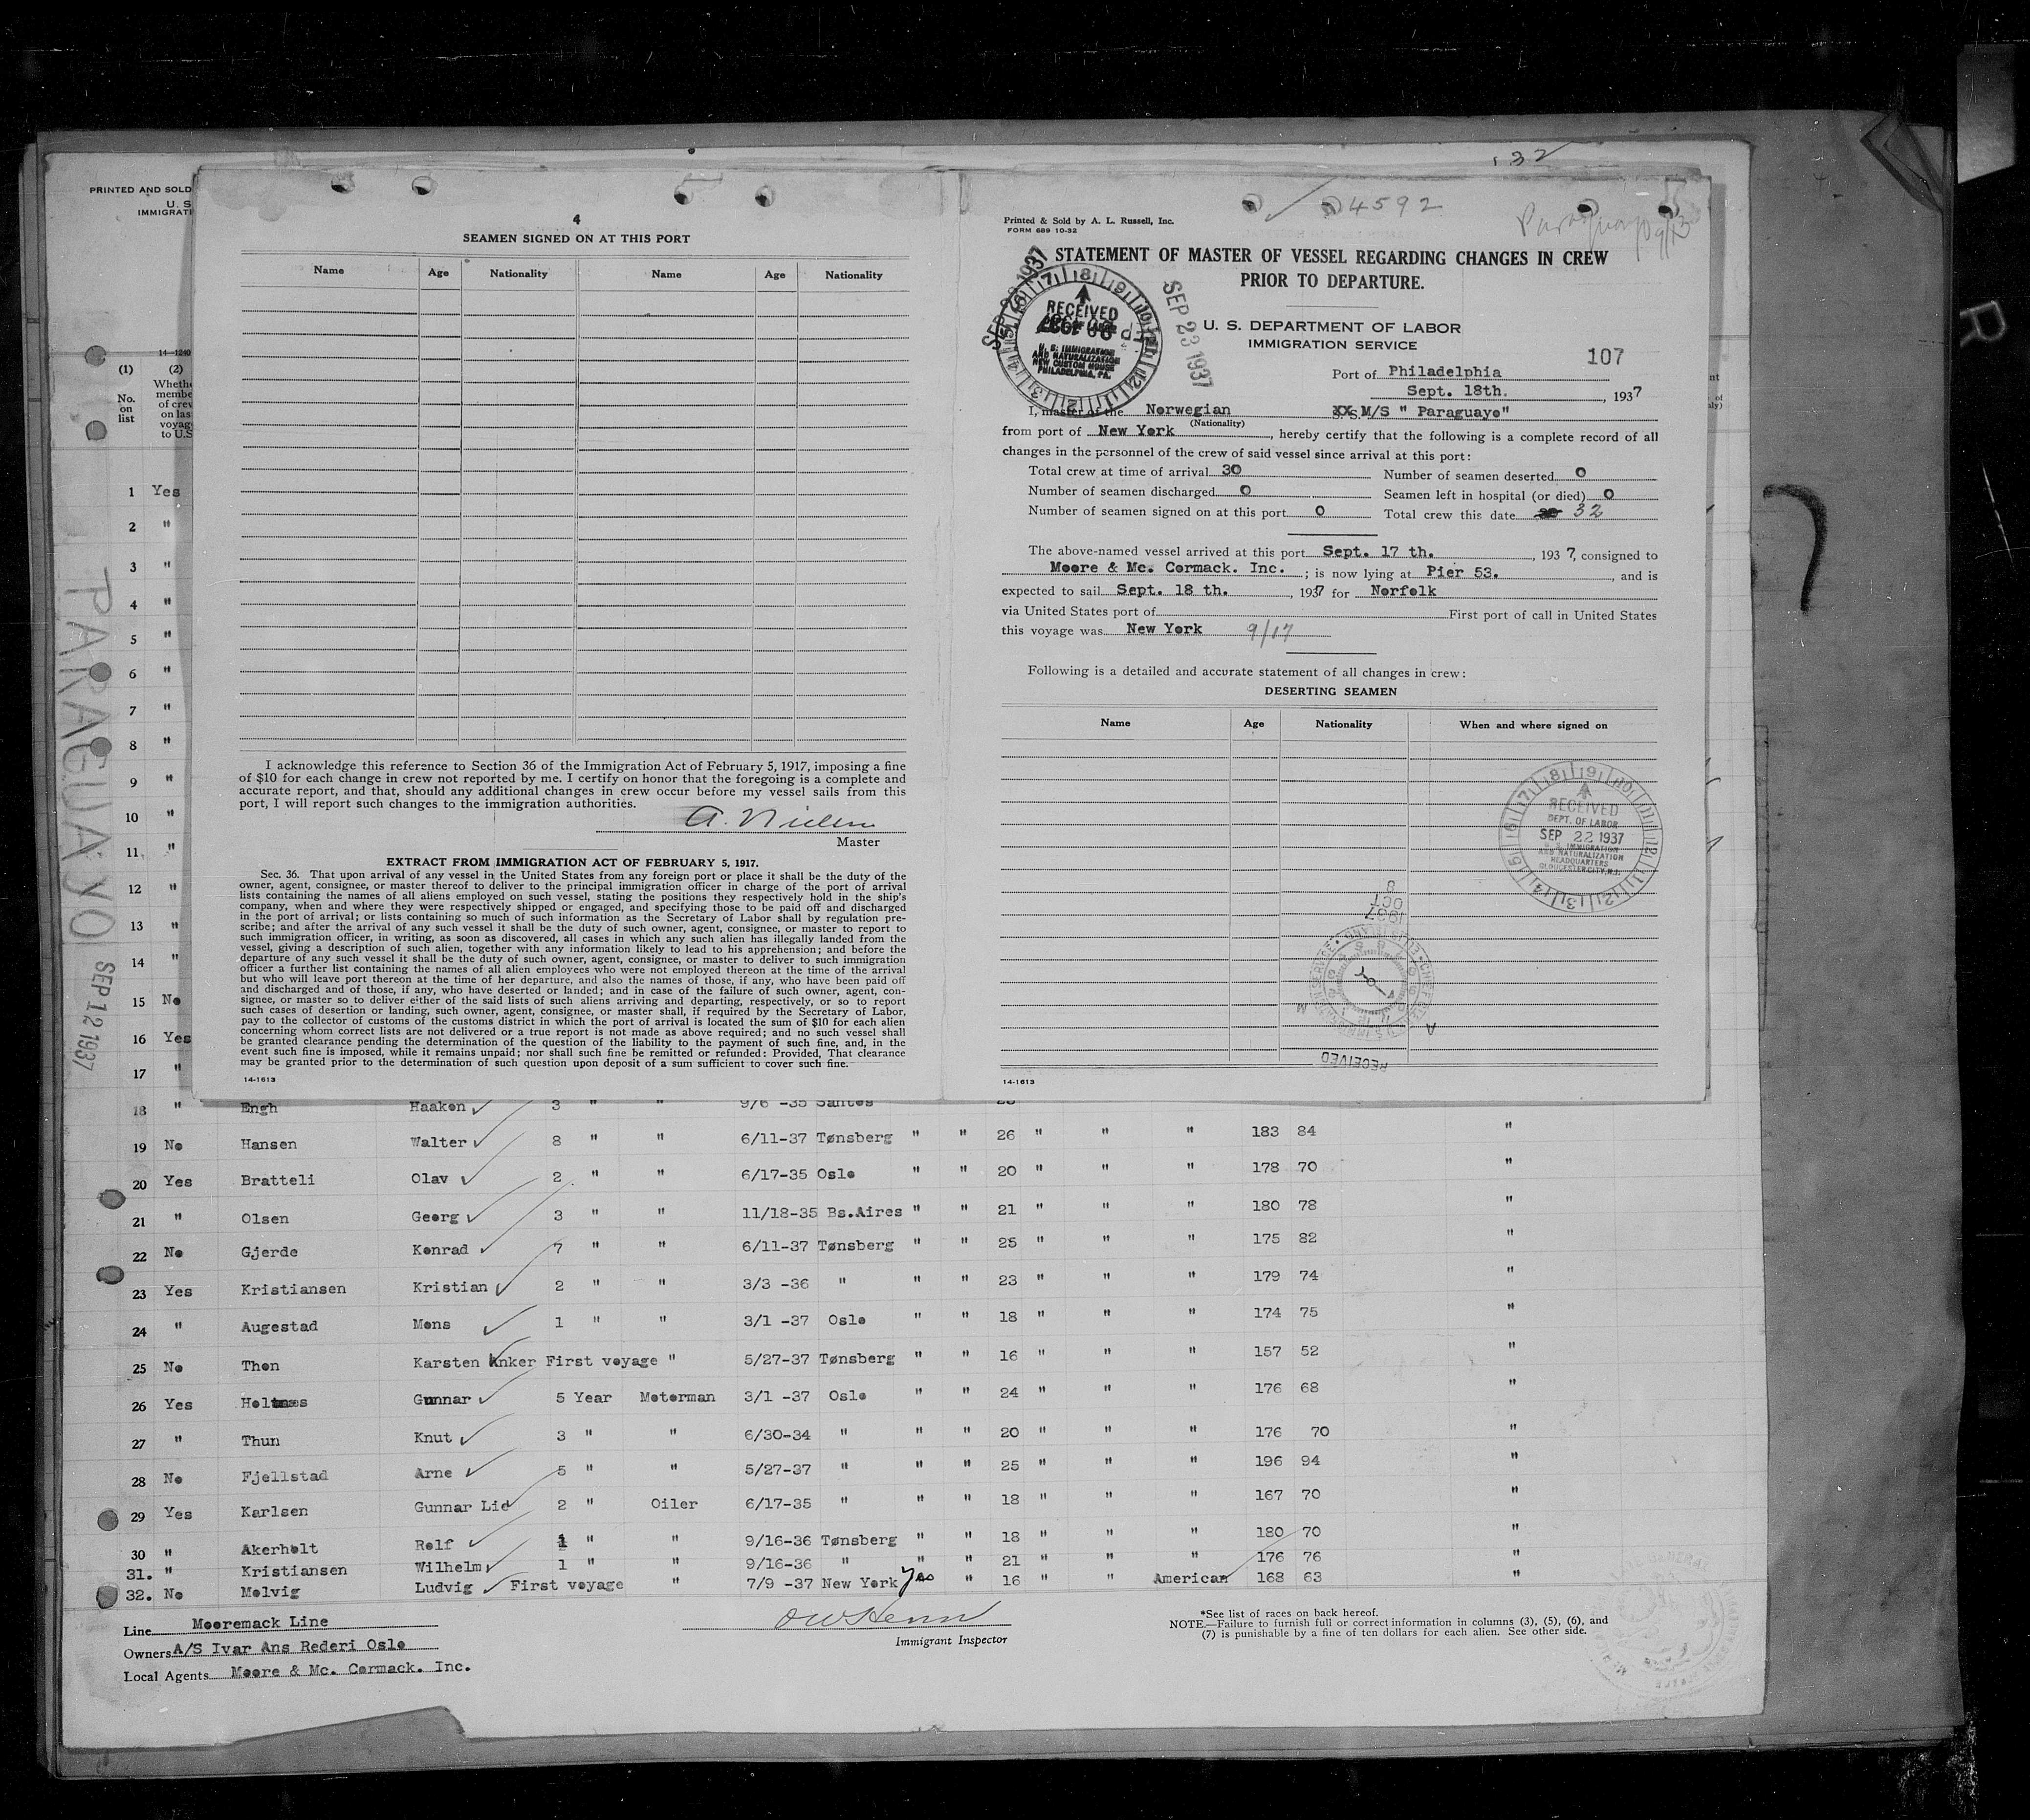 132
PRINTED AND SOLD
U. S
IMMIGRATI
14—1240
(1) (2)
No. on list
Wheth
membe
of crev
on las
voyag
to U.S
1 Yes
2 "
3 "
4 "
5 "
6 "
7 "
8 "
9 "
10 "
11 "
12 "
13 "
14 "
15 No
16 Yes
17 "
PARAGUAYO SEP 12 1937
4
SEAMEN SIGNED ON AT THIS PORT
Name Age Nationality Name Age Nationality
I acknowledge this reference to Section 36 of the Immigration Act of February 5, 1917, imposing a fine
of $10 for each change in crew not reported by me. I certify on honor that the foregoing is a complete and
accurate report, and that, should any additional changes in crew occur before my vessel sails from this
port, I will report such changes to the immigration authorities.
A. Nielsen
Master
EXTRACT FROM IMMIGRATION ACT OF FEBRUARY 5, 1917.
Sec. 36. That upon arrival of any vessel in the United States from any foreign port or place it shall be the duty of the
owner, agent, consignee, or master thereof to deliver to the principal immigration officer in charge of the port of arrival
lists containing the names of all aliens employed on such vessel, stating the positions they respectively hold in the ship's
company, when and where they were respectively shipped or engaged, and specifying those to be paid off and discharged
in the port of arrival; or lists containing so much of such information as the Secretary of Labor shall by regulation pre-
scribe; and after the arrival of any such vessel it shall be the duty of such owner, agent, consignee, or master to report to
such immigration officer, in writing, as soon as discovered, all cases in which any such alien has illegally landed from the
vessel, giving a description of such alien, together with any information likely to lead to his apprehension; and before the
departure of any such vessel it shall be the duty of such owner, agent, consignee, or master to deliver to such immigration
officer a further list containing the names of all alien employees who were not employed thereon at the time of the arrival
but who will leave port thereon at the time of her departure, and also the names of those, if any, who have been paid off
and discharged and of those, if any, who have deserted or landed; and in case of the failure of such owner, agent, con-
signee, or master so to deliver either of the said lists of such aliens arriving and departing, respectively, or so to report
such cases of desertion or landing, such owner, agent, consignee, or master shall, if required by the Secretary of Labor,
pay to the collector of customs of the customs district in which the port of arrival is located the sum of $10 for each alien
concerning whom correct lists are not delivered or a true report is not made as above required; and no such vessel shall
be granted clearance pending the determination of the question of the liability to the payment of such fine, and, in the
event such fine is imposed, while it remains unpaid; nor shall such fine be remitted or refunded: Provided, That clearance
may be granted prior to the determination of such question upon deposit of a sum sufficient to cover such fine.
14-1613
4592
Printed & Sold by A. L. Russell, Inc.
FORM 689 10-32
STATEMENT OF MASTER OF VESSEL REGARDING CHANGES IN CREW
PRIOR TO DEPARTURE.
RECEIVED
U. S. IMMIGRATION
AND NATURALIZATION
NEW CUSTOM HOUSE
PHILADELPHIA, PA.
SEP 23 1937
U. S. DEPARTMENT OF LABOR
IMMIGRATION SERVICE
107
Port of Philadelphia
Sept. 18th. , 1937
I, master of the Norwegian XX M/S " Paraguayo"
(Nationality)
from port of New York , hereby certify that the following is a complete record of all
changes in the personnel of the crew of said vessel since arrival at this port:
Total crew at time of arrival 30 Number of seamen deserted 0
Number of seamen discharged 0 Seamen left in hospital (or died) 0
Number of seamen signed on at this port 0 Total crew this date 32
The above-named vessel arrived at this port Sept. 17 th. , 1937, consigned to
Moore & Mc. Cormack. Inc. ; is now lying at Pier 53. , and is
expected to sail Sept. 18 th. , 1937 for Norfolk
via United States port of First port of call in United States
this voyage was New York 9/17
Following is a detailed and accurate statement of all changes in crew:
DESERTING SEAMEN
Name Age Nationality When and where signed on
RECEIVED
DEPT. OF LABOR
SEP 22 1937
U. S. IMMIGRATION
AND NATURALIZATION
HEADQUARTERS
GLOUCESTER CITY, N.J.
8
OCT
1937
RECEIVED
14-1613
18 " Engh Haakon 3 " " 9/6 -35 Santos
19 No Hansen Walter 8 " " 6/11-37 Tønsberg " " 26 " " " 183 84 "
20 Yes Bratteli Olav 2 " " 6/17-35 Oslo " " 20 " " " 178 70 "
21 " Olsen Georg 3 " " 11/18-35 Bs.Aires " " 21 " " " 180 78 "
22 No Gjerde Konrad 7 " " 6/11-37 Tønsberg " " 25 " " " 175 82 "
23 Yes Kristiansen Kristian 2 " " 3/3 -36 " " " 23 " " " 179 74 "
24 " Augestad Mons 1 " " 3/1 -37 Oslo " " 18 " " " 174 75 "
25 No Thon Karsten Anker First voyage " 5/27-37 Tønsberg " " 16 " " " 157 52 "
26 Yes Holtnæs Gunnar 5 Year Motorman 3/1 -37 Oslo " " 24 " " " 176 68 "
27 " Thun Knut 3 " " 6/30-34 " " " 20 " " " 176 70 "
28 No Fjellstad Arne 5 " " 5/27-37 " " " 25 " " " 196 94 "
29 Yes Karlsen Gunnar Lid 2 " Oiler 6/17-35 " " " 18 " " " 167 70 "
30 " Akerholt Rolf 1 " " 9/16-36 Tønsberg " " 18 " " " 180 70 "
31. " Kristiansen Wilhelm 1 " " 9/16-36 " " " 21 " " " 176 76 "
32. No Molvig Ludvig First voyage " 7/9 -37 New York Yes " 16 " American 168 63 "
Line Mooremack Line
Owners A/S Ivar Ans Rederi Oslo
Local Agents Moore & Mc. Cormack. Inc.
Immigrant Inspector
*See list of races on back hereof.
NOTE.—Failure to furnish full or correct information in columns (3), (5), (6), and
(7) is punishable by a fine of ten dollars for each alien. See other side.